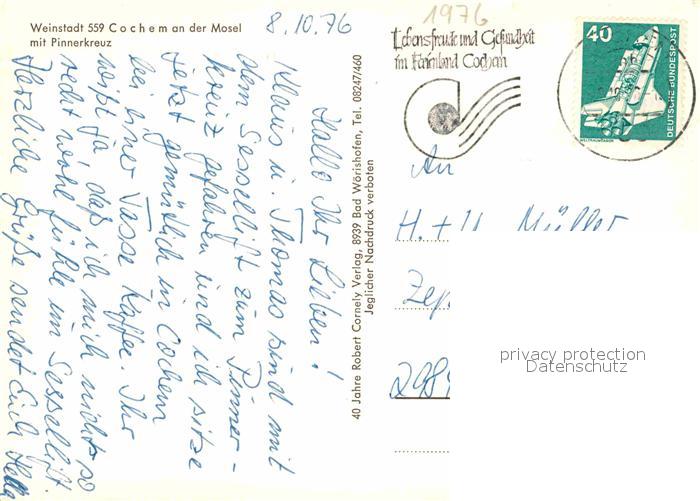 Weinstadt 559 Cochem an der Mosel
mit Pinnerkreuz
8.10.76
1976
Lebensfreude und Gesundheit
im Ferienland Cochem
40
DEUTSCHE BUNDESPOST
WELTRAUMLABOR
Hallo Ihr Lieben!
Klaus u. Thomas sind mit
dem Sessellift zum Pinner-
kreuz gefahren und ich sitze
jetzt gemütlich in Cochem
bei einer Tasse Kaffee. Ihr
wißt ja daß ich mich nicht so
recht wohl fühle im Sessellift.
Herzliche Grüße sendet Euch Hella
40 Jahre Robert Cornely Verlag, 8939 Bad Wörishofen, Tel. 08247/460
Jeglicher Nachdruck verboten
An
H. + U. Müller
Zep
298
privacy protection
Datenschutz